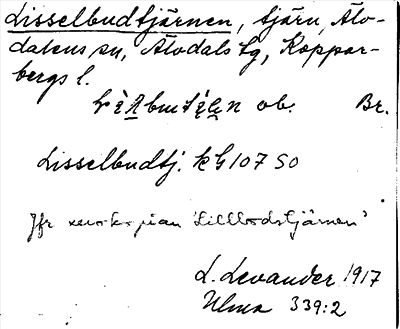 Lisselbudtjärnen, tjärn, Älv-
dalens sn, Älvdals tg, Koppar-
bergs l.
ob. Br.
Lisselbudtj. k G 107 SO
Jfr xerokopian 'Lillbodstjärnen'
L. Levander 1917
Ulma 339:2